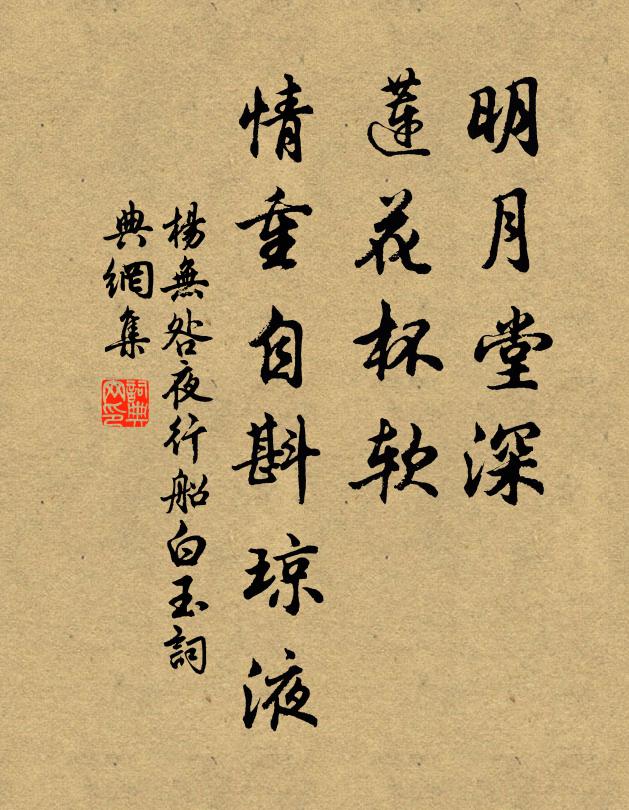 明月堂深
蓮花杯軟
情重自斟琼液
楊無咎夜行船白玉詞
典網集
詞典
网印